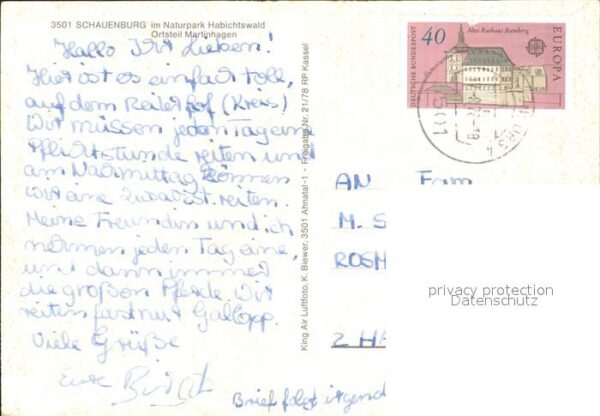 3501 SCHAUENBURG im Naturpark Habichtswald
Ortsteil Martinhagen
Hallo Ihr Lieben!
Hier ist es einfach toll,
auf dem Reiterhof (Kreis)
Wir müssen jeden Tag eine
Pflichtstunde reiten und
am Nachmittag können
wir eine zusätzl. reiten.
Meine Freundin und ich
nehmen jeden Tag eine,
und dann immer
die großen Pferde. Wir
reiten fast nur Galopp.
Viele Grüße
Eure Birgit
Brief folgt irgend
King Air Luftfoto, K. Biewer, 3501 Ahnatal-1 - Freigabe Nr. 21/78 RP Kassel
40
Altes Rathaus Bamberg
DEUTSCHE BUNDESPOST
EUROPA
3501
AN Fam
M. S
ROSM
2 HA
privacy protection
Datenschutz